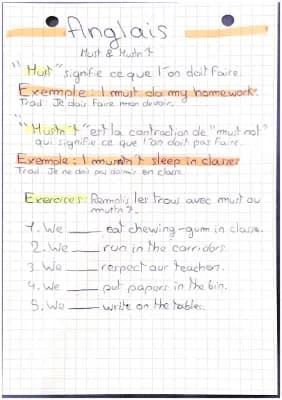 Anglais
Must & Mustn't
"Must" signifie ce que l'on doit faire.
Exemple: I must do my homework.
Trad: Je dois faire mon devoir.
"Mustn't" est la contraction de "must not"
qui signifie ce que l'on doit pas faire.
Exemple: I mustn't sleep in classe.
Trad: Je ne dois pas dormir en classe.
Exercices: Remplis les trous avec must ou
mustn't.
1. We ____ eat chewing-gum in classe.
2. We ____ run in the corridors.
3. We ____ respect our teachers.
4. We ____ put papers in the bin.
5. We ____ write on the tables.